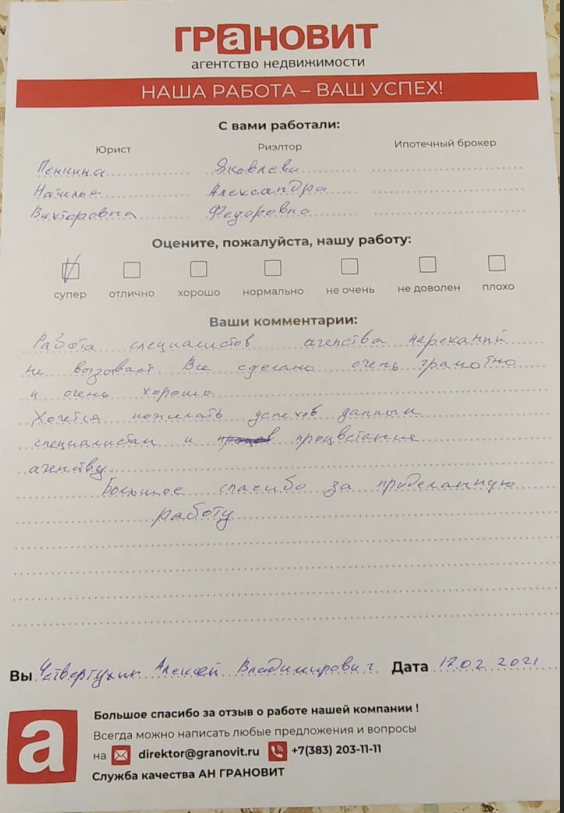 ГРаНОВИТ
агентство недвижимости
НАША РАБОТА – ВАШ УСПЕХ!
С вами работали:
Юрист Риэлтор Ипотечный брокер
Пенкина Яковлева
Наталья Александра
Викторовна Федоровна
Оцените, пожалуйста, нашу работу:
супер отлично хорошо нормально не очень не доволен плохо
Ваши комментарии:
Работа специалистов агенства нареканий
не вызывает Все сделано очень грамотно
и очень хорошо.
Хочется пожелать успехов данным
специалистам и процветания
агенству.
Большое спасибо за проделанную
работу
Вы Четвертухин Алексей Владимирович Дата 17.02 2021
а
Большое спасибо за отзыв о работе нашей компании !
Всегда можно написать любые предложения и вопросы
на direktor@granovit.ru +7(383) 203-11-11
Служба качества АН ГРАНОВИТ